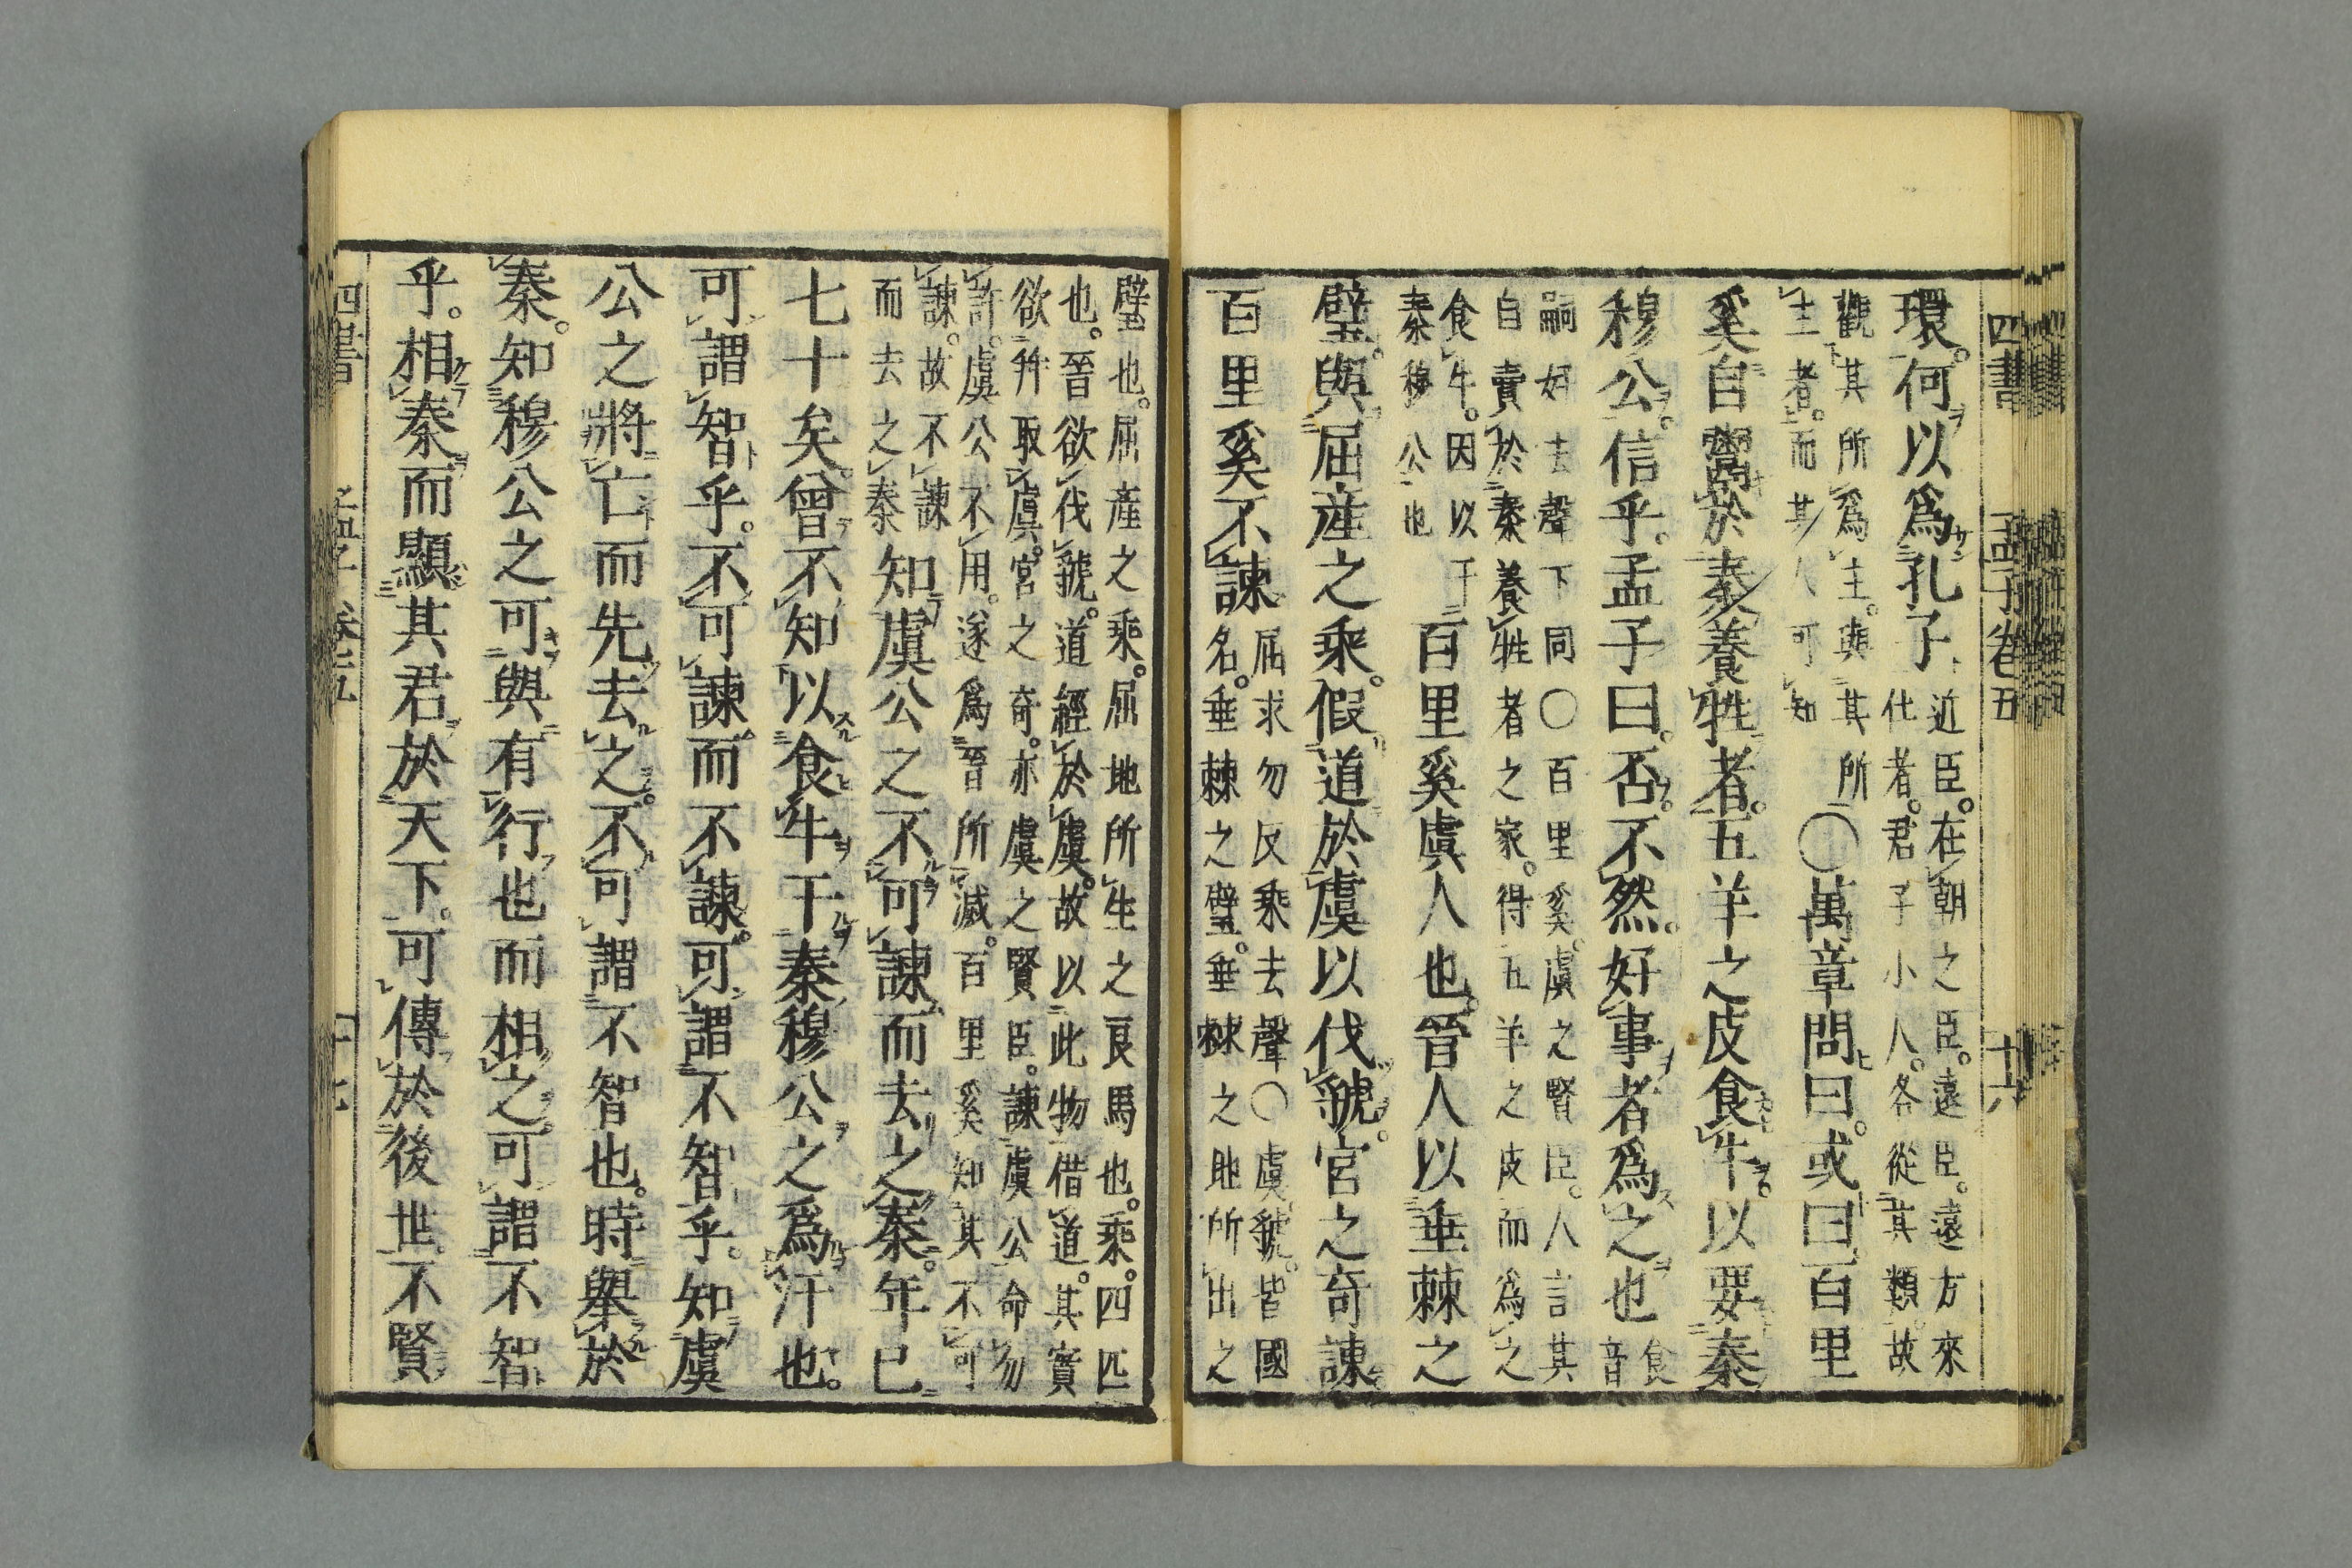 四書 孟子卷五 廿六
環。何以爲孔子
近臣。在朝之臣。遠臣。遠方來
仕者。君子小人。各從其類。故
觀其所爲主。與其所
主者。而其人可知
〇萬章問曰。或曰百里
奚自鬻於秦養牲者。五羊之皮食牛。以要秦
穆公。信乎。孟子曰。否。不然。好事者爲之也
食
音
嗣好去聲下同〇百里奚。虞之賢臣。人言其
自賣於秦養牲者之家。得五羊之皮而爲之
食牛。因以干
秦穆公也
百里奚虞人也。晉人以垂棘之
璧。與屈産之乘。假道於虞以伐虢。宮之奇諫
百里奚不諫
屈求勿反乘去聲〇虞。虢。皆國
名。垂棘之璧。垂棘之地所出之
璧也。屈産之乘。屈地所生之良馬也。乘。四匹
也。晉欲伐虢。道經於虞。故以此物借道。其實
欲幷取虞。宮之奇。亦虞之賢臣。諫虞公命勿
許。虞公不用。遂爲晉所滅。百里奚知其不可
諫。故不諫
而去之秦
知虞公之不可諫而去之秦。年已
七十矣曾不知以食牛干秦穆公之爲汙也。
可謂智乎。不可諫而不諫。可謂不智乎。知虞
公之將亡而先去之。不可謂不智也。時舉於
秦。知穆公之可與有行也而相之。可謂不智
乎。相秦而顯其君於天下。可傳於後世。不賢
四書 孟子 卷五